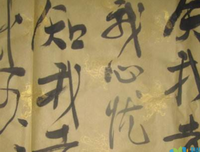 知我者
我心忧
知我者